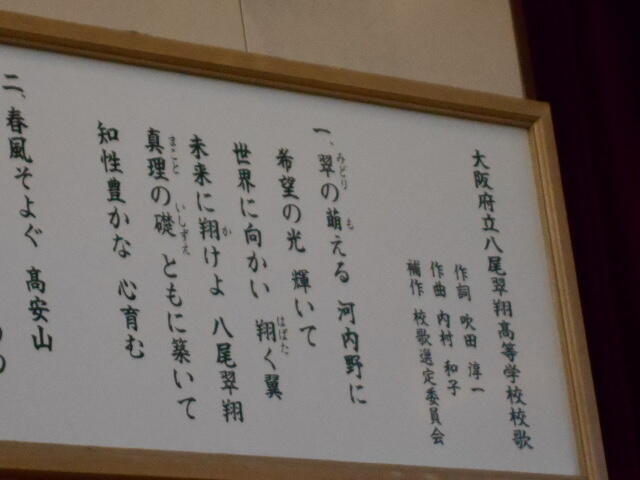 大阪府立八尾翠翔高等学校校歌
作詞 吹田 淳一
作曲 内村 和子
補作 校歌選定委員会
一、翠の萌える 河内野に
みどり も
希望の光 輝いて
世界に向かい 翔く翼
はばた
未来に翔けよ 八尾翠翔
か
真理の礎 ともに築いて
まこと いしずえ
知性豊かな 心育む
二、春風そよぐ 高安山